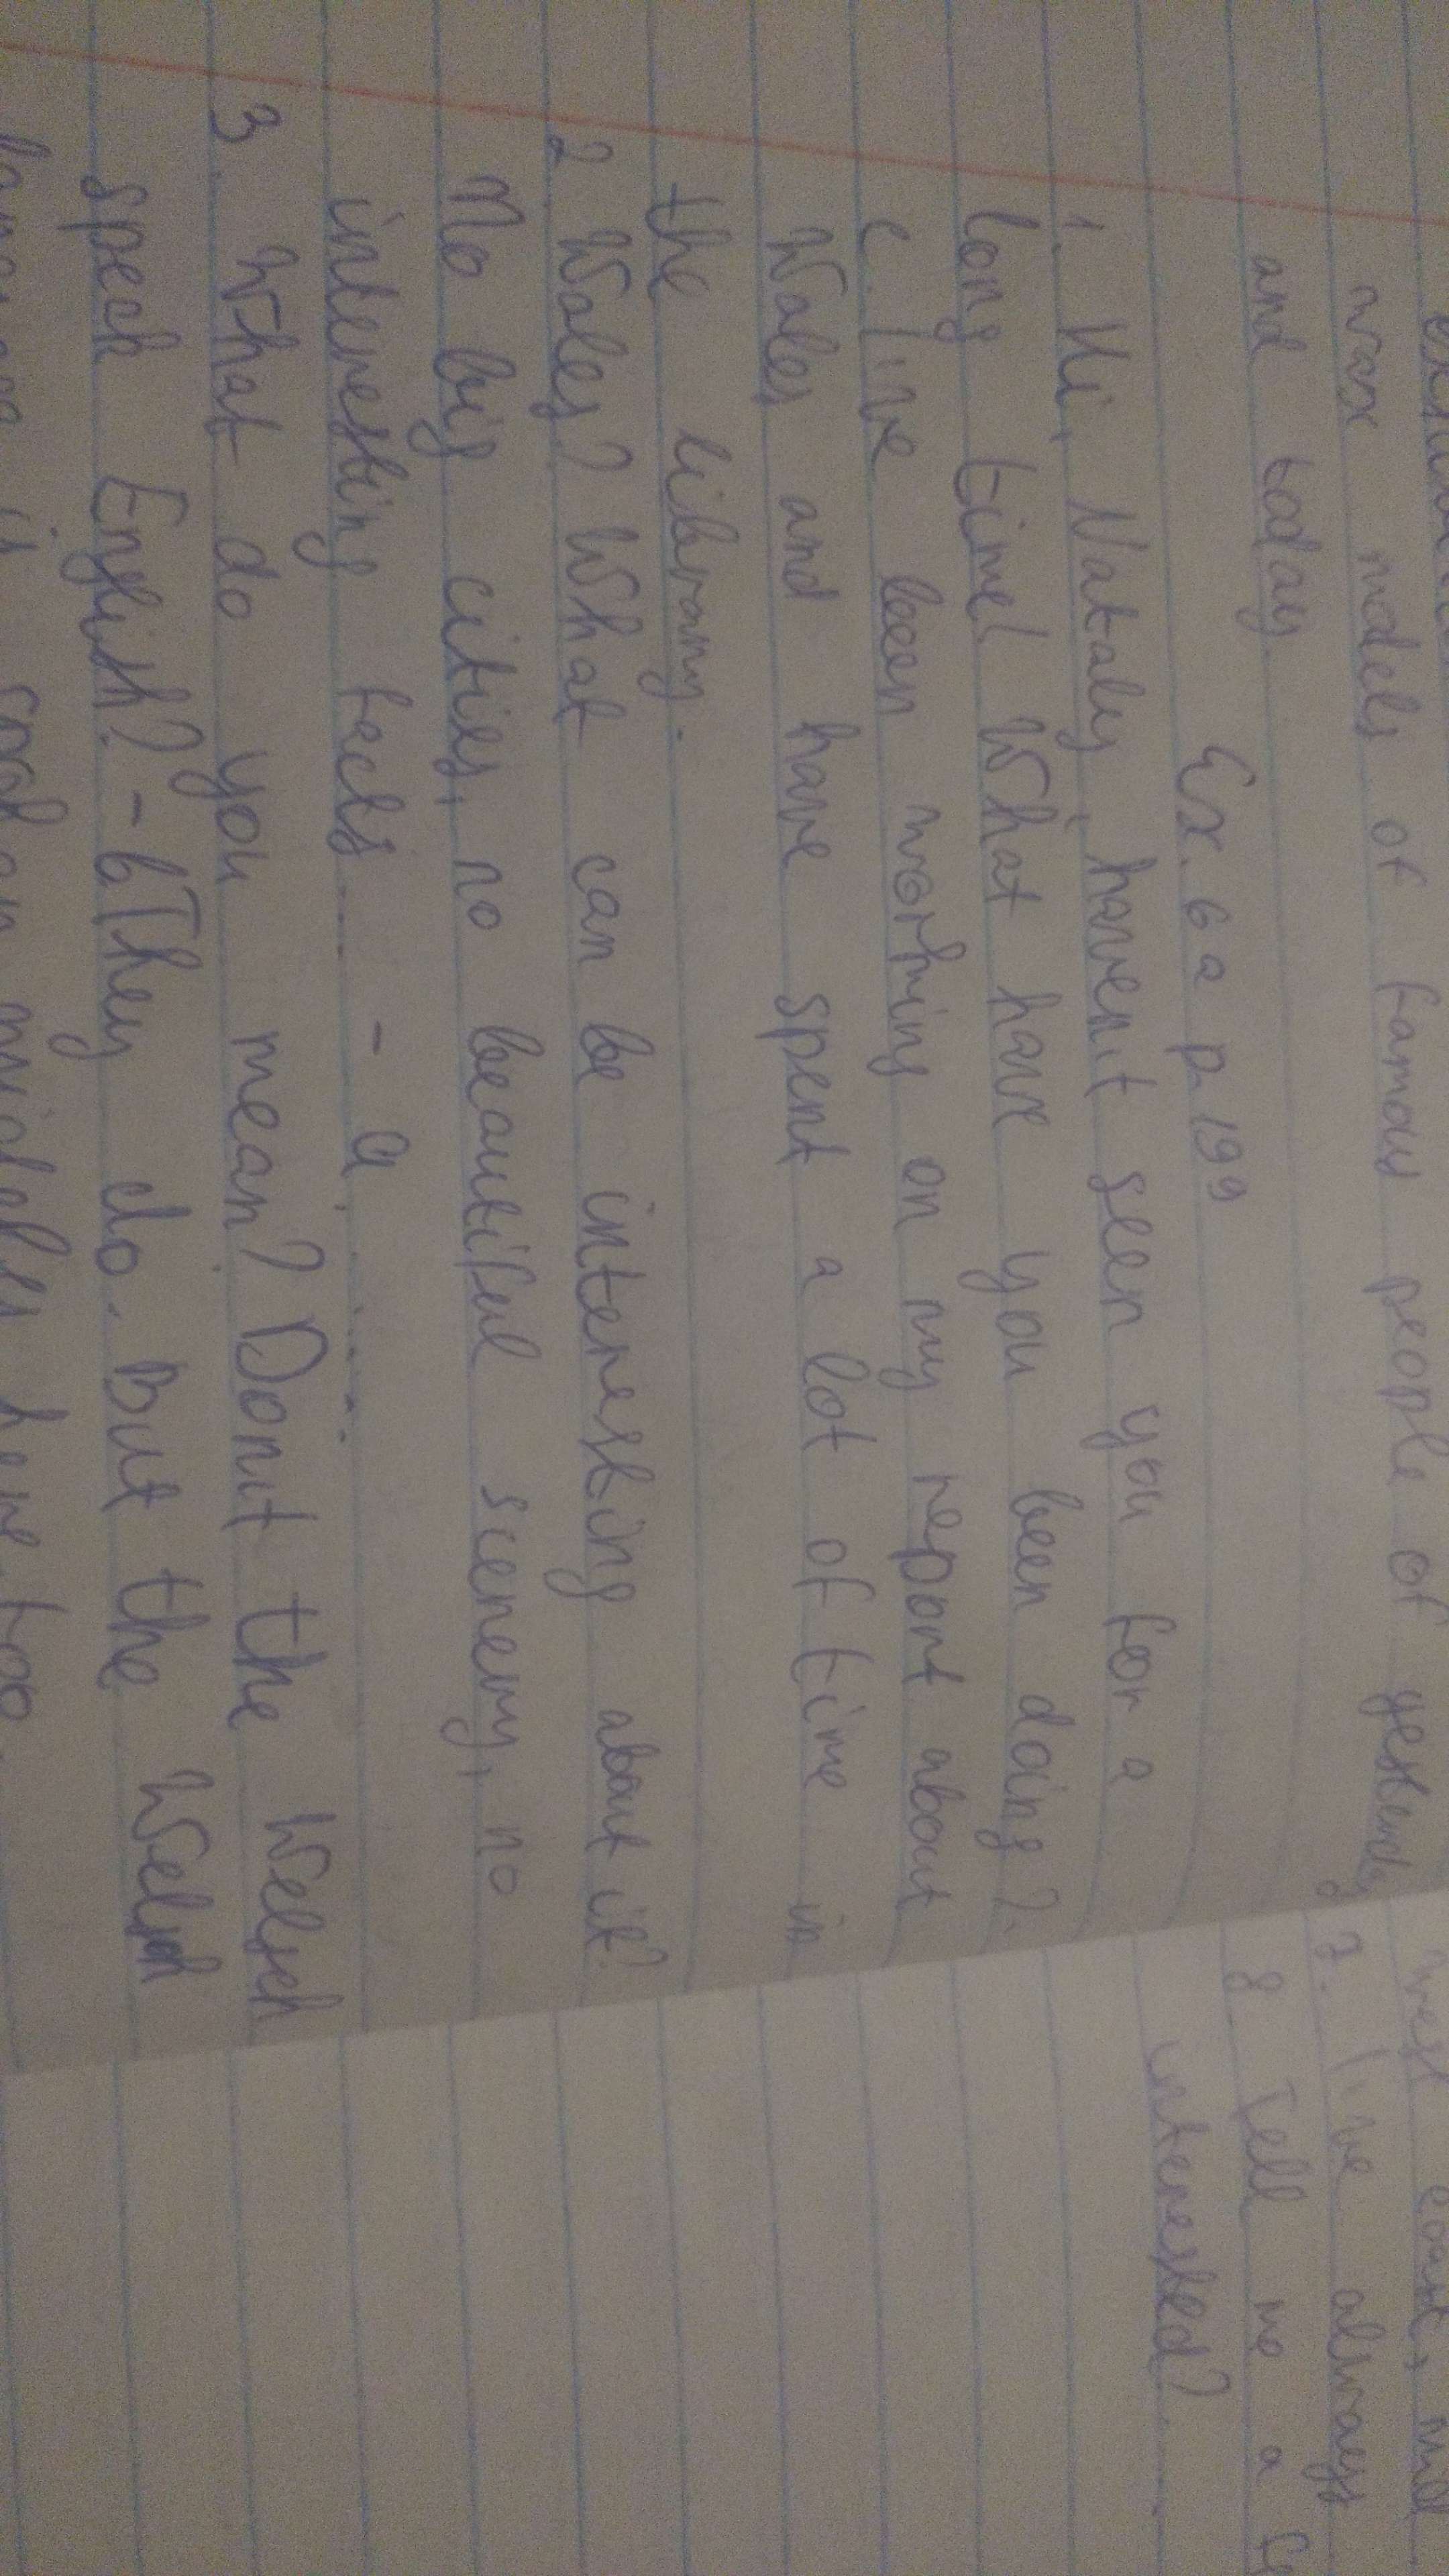 wax models of famous people of yesterday
and today.
Ex. 6 a p. 199
1. Hi, Nataly, haven't seen you for a
long time! What have you been doing?
c. I've been working on my report about
Wales and have spent a lot of time in
the library.
2 Wales? What can be interesting about it?
No big cities, no beautiful scenery, no
interesting facts... - a
3. What do you mean? Don't the Welsh
speak English? - b They do. But the Welsh
language is spoken here too
7. I've always
8 Tell me a
interested?